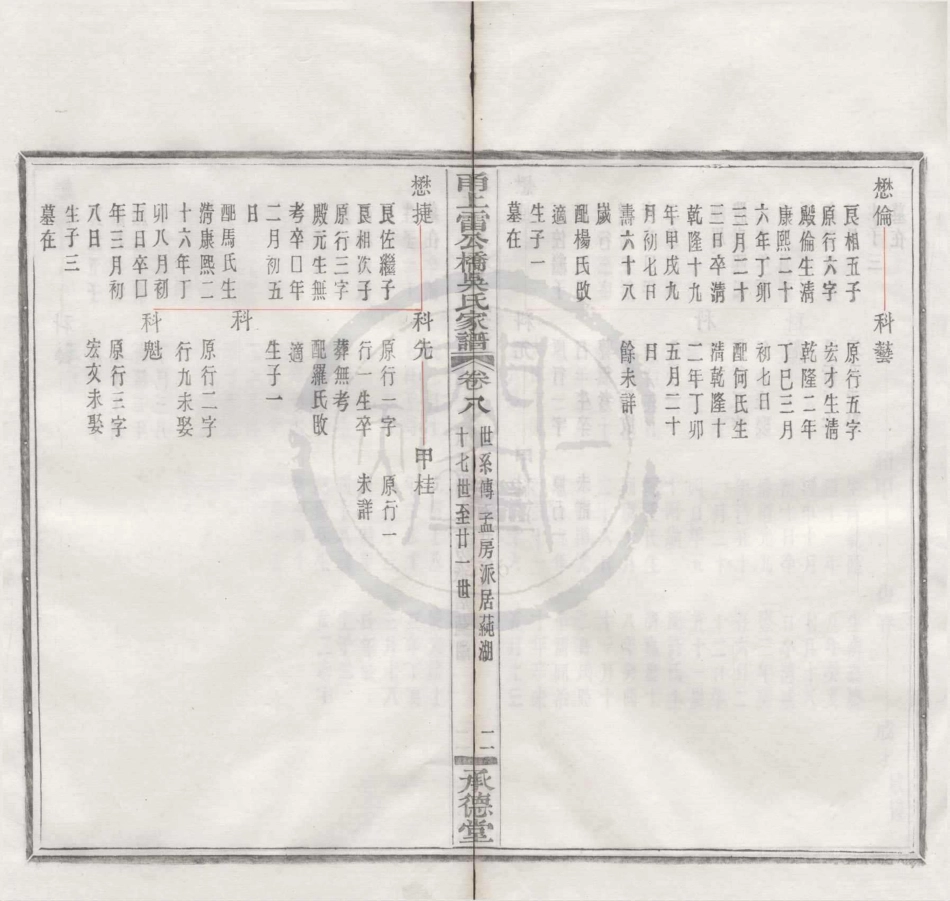 懋倫
良相五子
原行六字
殿倫生清
康熙二十
六年丁卯
三月二十
三日卒清
乾隆十九
年甲戌九
月初七日
壽六十八
歲
配楊氏攺
適
生子一
墓在
科藝
原行五字
宏才生清
乾隆二年
丁巳三月
初七日
配何氏生
清乾隆十
二年丁卯
五月二十
日
餘未詳
甬上雷公橋吳氏家譜
卷八
世系傳 孟房派居蒓湖
十七世至廿一世
二
承德堂
懋捷
良佐繼子
良相次子
原行三字
殿元生無
考卒囗年
二月初五
日
配馬氏生
清康熙二
十六年丁
卯八月初
五日卒囗
年三月初
八日
生子三
墓在
科先
原行一字
行一生卒
葬無考
配羅氏攺
適
生子一
甲桂
原行一
未詳
科
原行二字
行九未娶
科魁
原行三字
宏文未娶